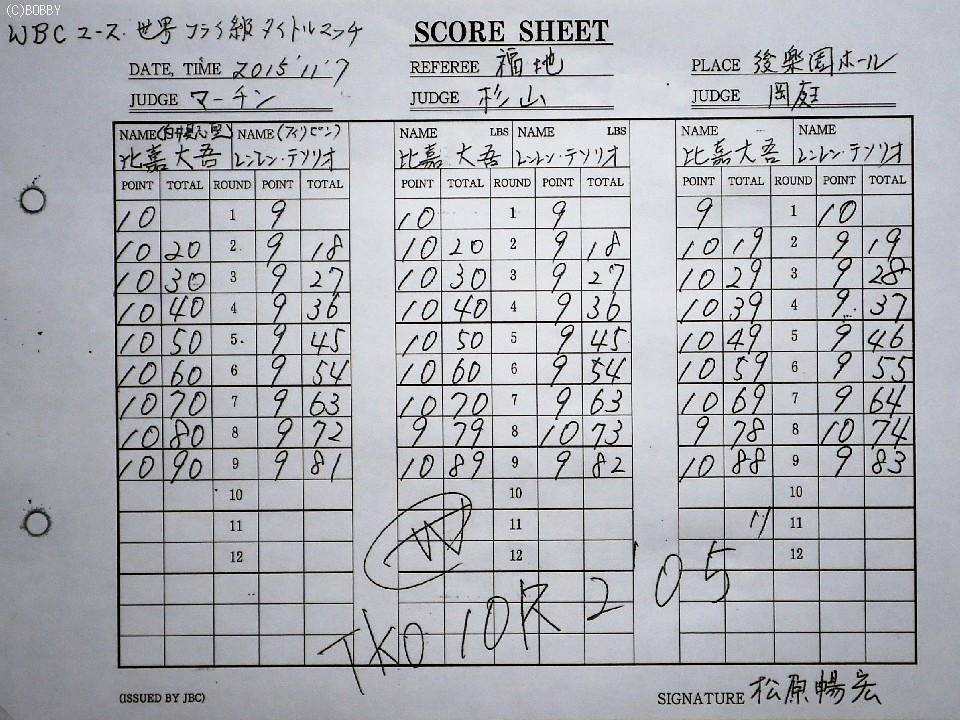 (C)BOBBY
WBC ユース 世界 フライ級 タイトルマッチ
SCORE SHEET
DATE, TIME 2015 '11 '7 REFEREE 福地 PLACE 後楽園ホール
JUDGE マーチン JUDGE 杉山 JUDGE 岡庭
NAME (白井具志堅) NAME (フィリピン) NAME LBS NAME LBS NAME NAME
比嘉大吾 レンレン・テソリオ 比嘉大吾 レンレン・テソリオ 比嘉大吾 レンレン・テソリオ
POINT TOTAL ROUND POINT TOTAL POINT TOTAL ROUND POINT TOTAL POINT TOTAL ROUND POINT TOTAL
10 1 9 10 1 9 9 1 10
10 20 2 9 18 10 20 2 9 18 10 19 2 9 19
10 30 3 9 27 10 30 3 9 27 10 29 3 9 28
10 40 4 9 36 10 40 4 9 36 10 39 4 9 37
10 50 5 9 45 10 50 5 9 45 10 49 5 9 46
10 60 6 9 54 10 60 6 9 54 10 59 6 9 55
10 70 7 9 63 10 70 7 9 63 10 69 7 9 64
10 80 8 9 72 9 79 8 10 73 9 78 8 10 74
10 90 9 9 81 10 89 9 9 82 10 88 9 9 83
10 10 10
11 W 11 11
12 12 12
TKO 10R 2'05"
(ISSUED BY JBC) SIGNATURE 松原暢宏